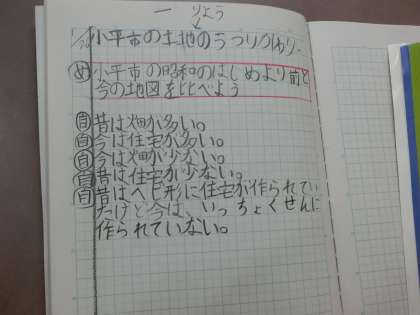 りよう
小平市の土地のうつりかわり
め 小平市の昭和のはじめより前と
今の地図を比べよう
自 昔は畑が多い。
自 今は住宅が多い。
自 今は畑が少ない。
自 昔は住宅が少ない。
自 昔はヘビ形に住宅が作られてい
たけど今は、いっちょくせんに
作られていない。